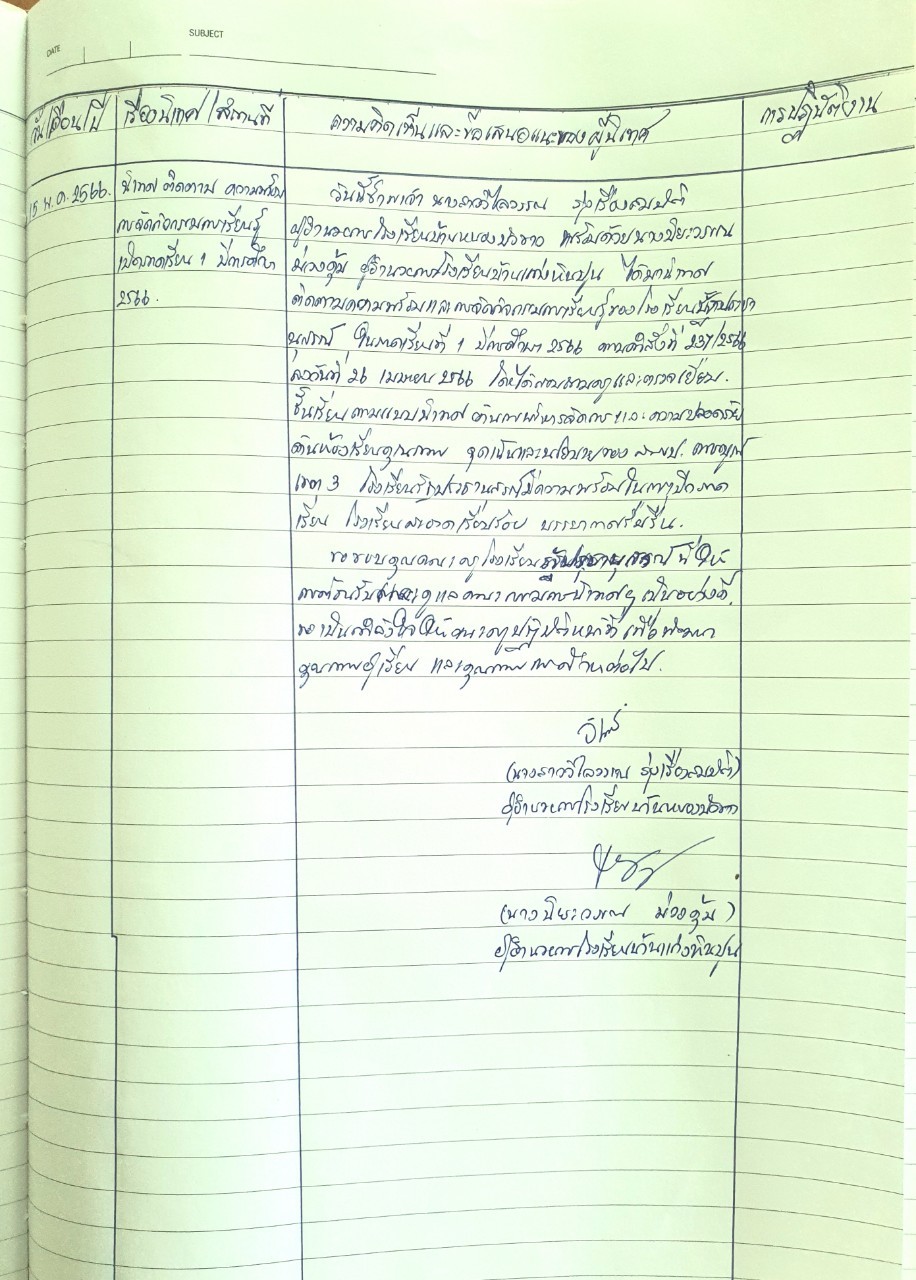 DATE
SUBJECT
วัน/เดือน/ปี
เรื่องนิเทศ/สถานที่
ความคิดเห็นและข้อเสนอแนะของผู้นิเทศ
การปฏิบัติงาน
15 พ.ค. 2566.
นิเทศ ติดตาม ความพร้อม
การจัดกิจกรรมการเรียนรู้
เปิดภาคเรียน 1 ปีการศึกษา
2566.
วันนี้ข้าพเจ้า นางสาววิไลวรรณ รุ่งเรืองสมบัติ
ผู้อำนวยการโรงเรียนบ้านหนองบัวขาว พร้อมด้วยนางปิยะวรรณ
ม่วงคุ้ม ผู้อำนวยการโรงเรียนบ้านแก่งหินปูน ได้มานิเทศ
ติดตามความพร้อมและการจัดกิจกรรมการเรียนรู้ของโรงเรียน
นุสรณ์ ในภาคเรียนที่ 1 ปีการศึกษา 2566 ตามคำสั่งที่ 237/2566
ลงวันที่ 26 เมษายน 2566 โดยได้สอบถามครูและตรวจเยี่ยม
ชั้นเรียนตามแบบนิเทศ ด้านการบริหารจัดการ และความปลอดภัย
ด้านห้องเรียนคุณภาพ จุดเน้นและนโยบายของ สพป. กาญจนบุรี
เขต 3 มีความพร้อมในการเปิดภาค
เรียน โรงเรียนสะอาดเรียบร้อย บรรยากาศร่มรื่น.
ขอขอบคุณคณะครูโรงเรียน ที่ให้
การต้อนรับและดูแลคณะกรรมการนิเทศฯ เป็นอย่างดี.
ขอเป็นกำลังใจให้คณะครูปฏิบัติหน้าที่ เพื่อพัฒนา
คุณภาพผู้เรียน และคุณภาพการศึกษาต่อไป.
(นางสาววิไลวรรณ รุ่งเรืองสมบัติ)
ผู้อำนวยการโรงเรียนบ้านหนองบัวขาว
(นางปิยะวรรณ ม่วงคุ้ม)
ผู้อำนวยการโรงเรียนบ้านแก่งหินปูน